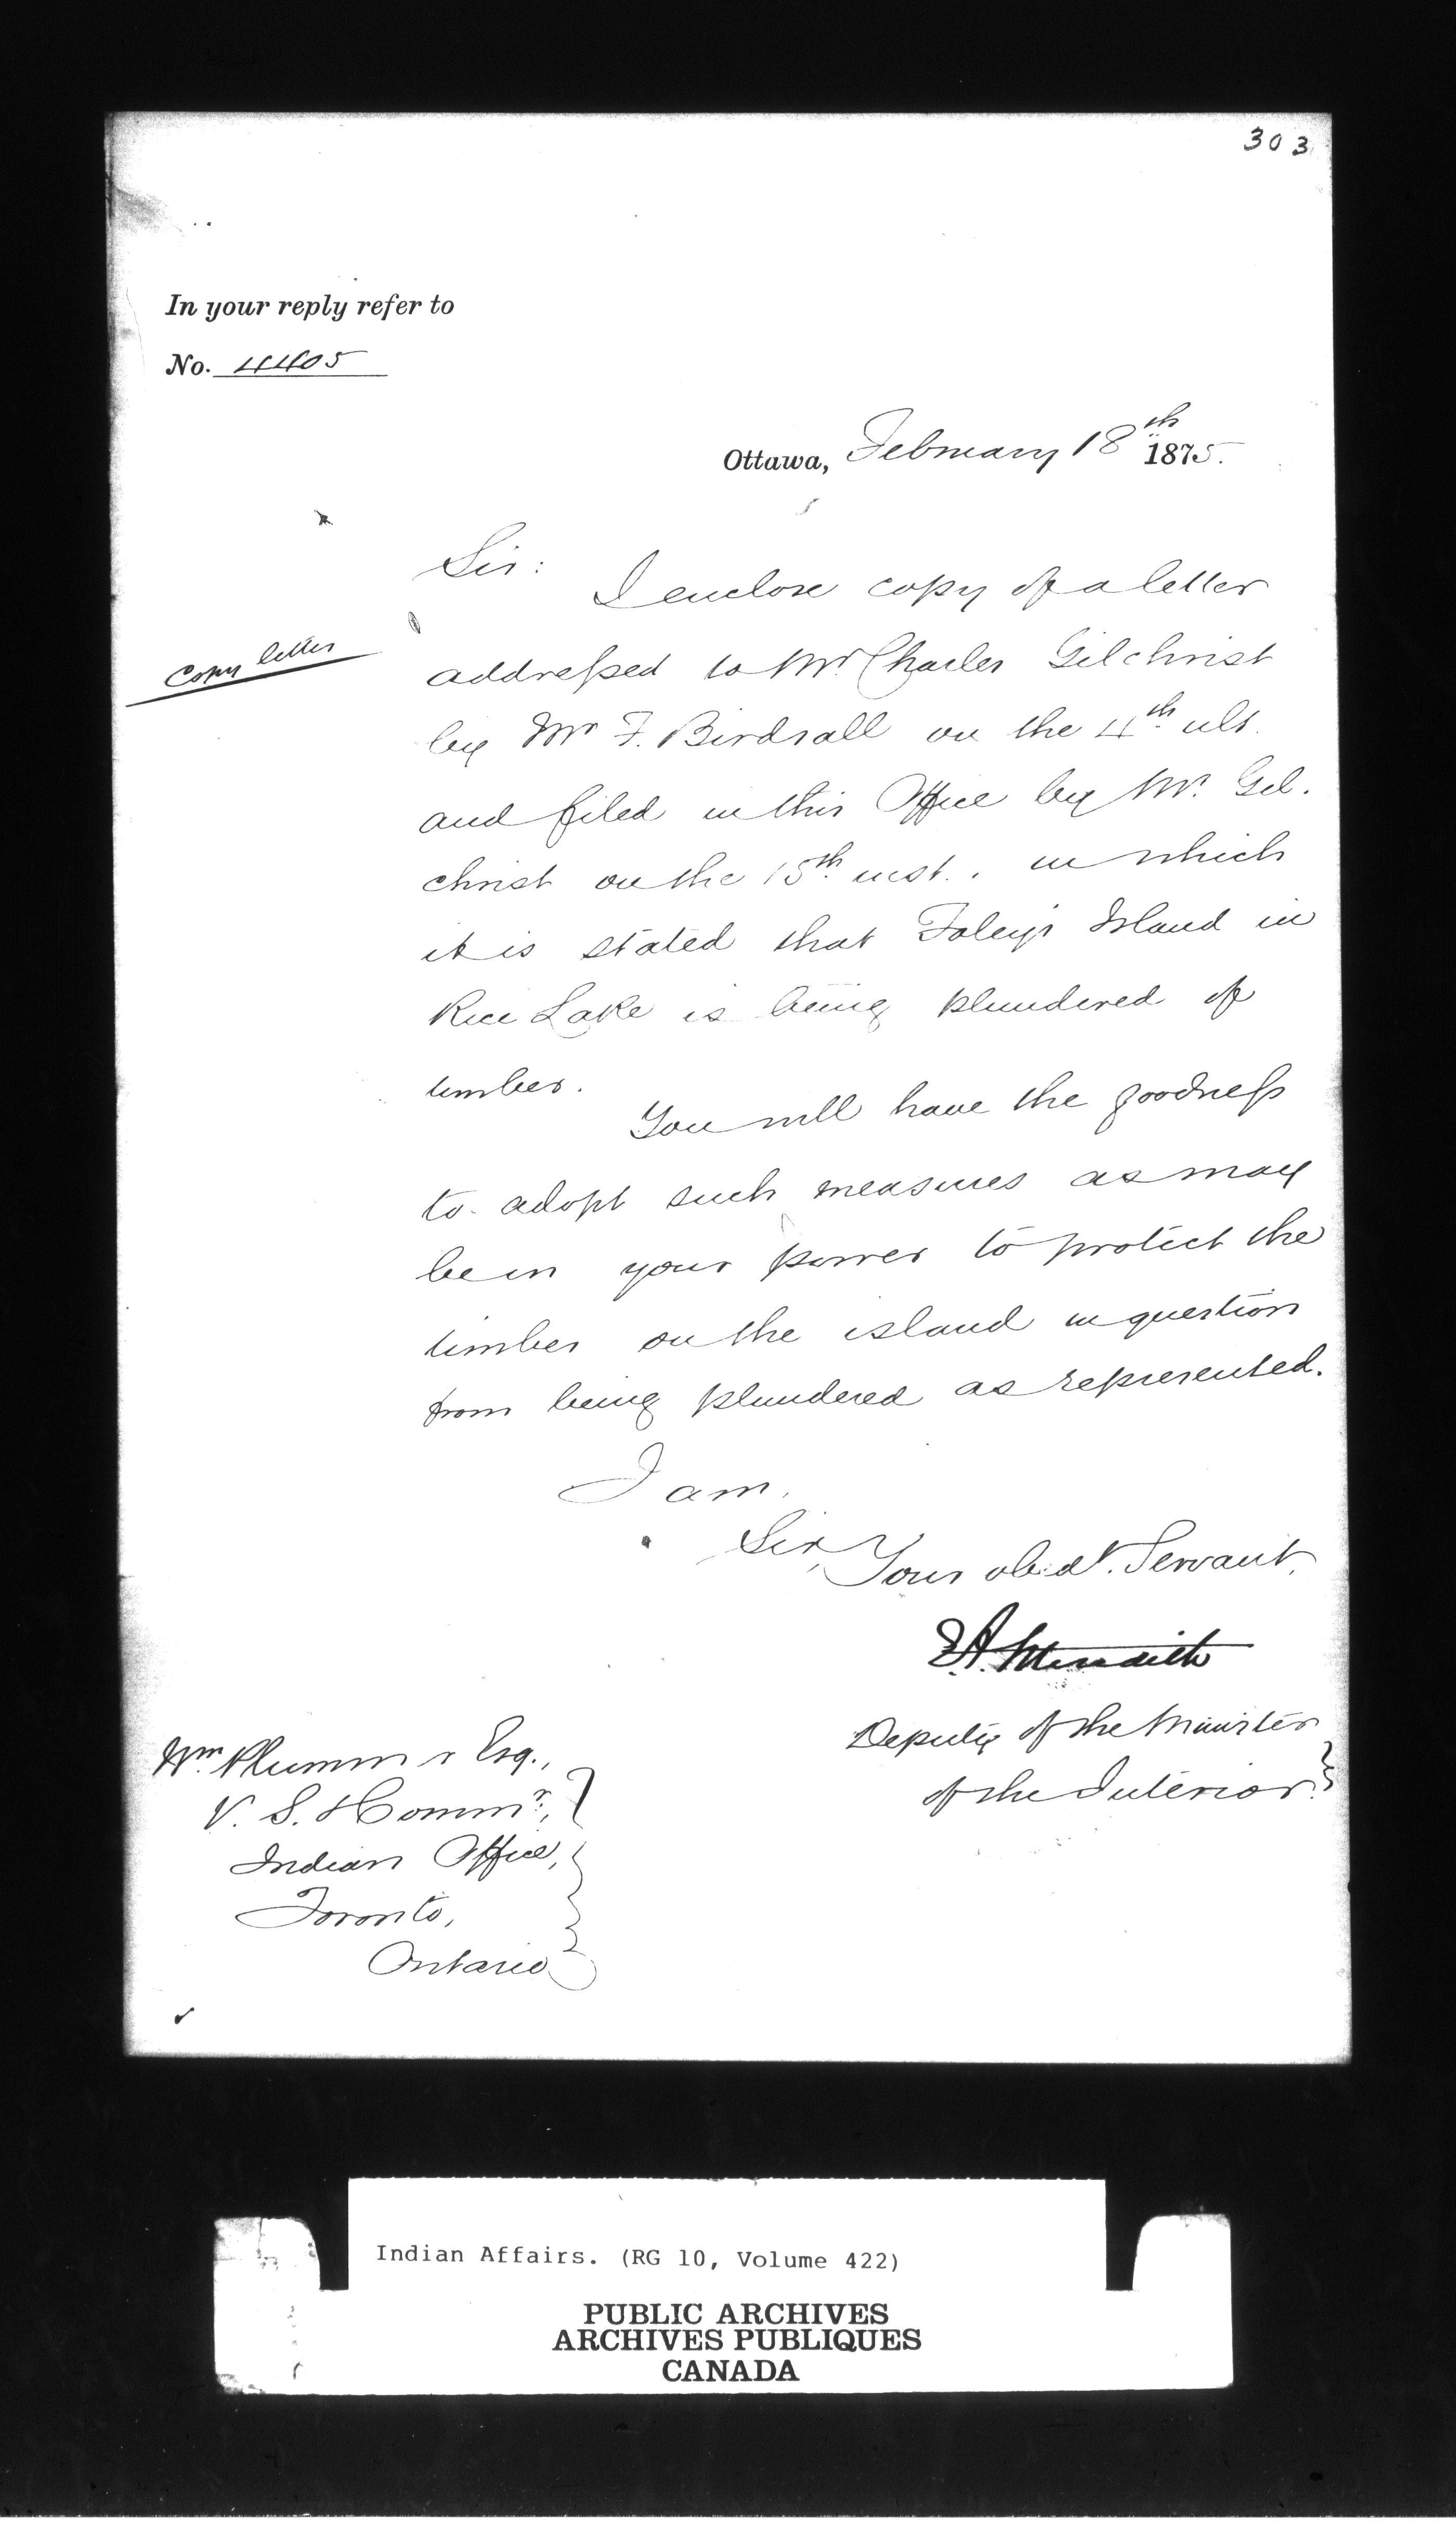 303
In your reply refer to
No. 4405
Ottawa, February 18th 1875.
Sir:
I enclose copy of a letter
Copy letter
addressed to Mr. Charles Gilchrist
by Mr F. Birdsall on the 4th. ult.
and filed in this Office by Mr. Gil.
christ on the 15th. inst., in which
it is stated that Foley's Island in
Rice Lake is being plundered of
timber.
You will have the goodness
to adopt such measures as may
be in your power to protect the
timber on the island in question
from being plundered as represented.
I am,
Sir,
Your obedt. Servant,
E.A. Meredith
Deputy of the Minister
of the Interior.
Wm Plummer Esq.,
V. S. & Commr.,
Indian Office,
Toronto,
Ontario
Indian Affairs. (RG 10, Volume 422)
PUBLIC ARCHIVES
ARCHIVES PUBLIQUES
CANADA